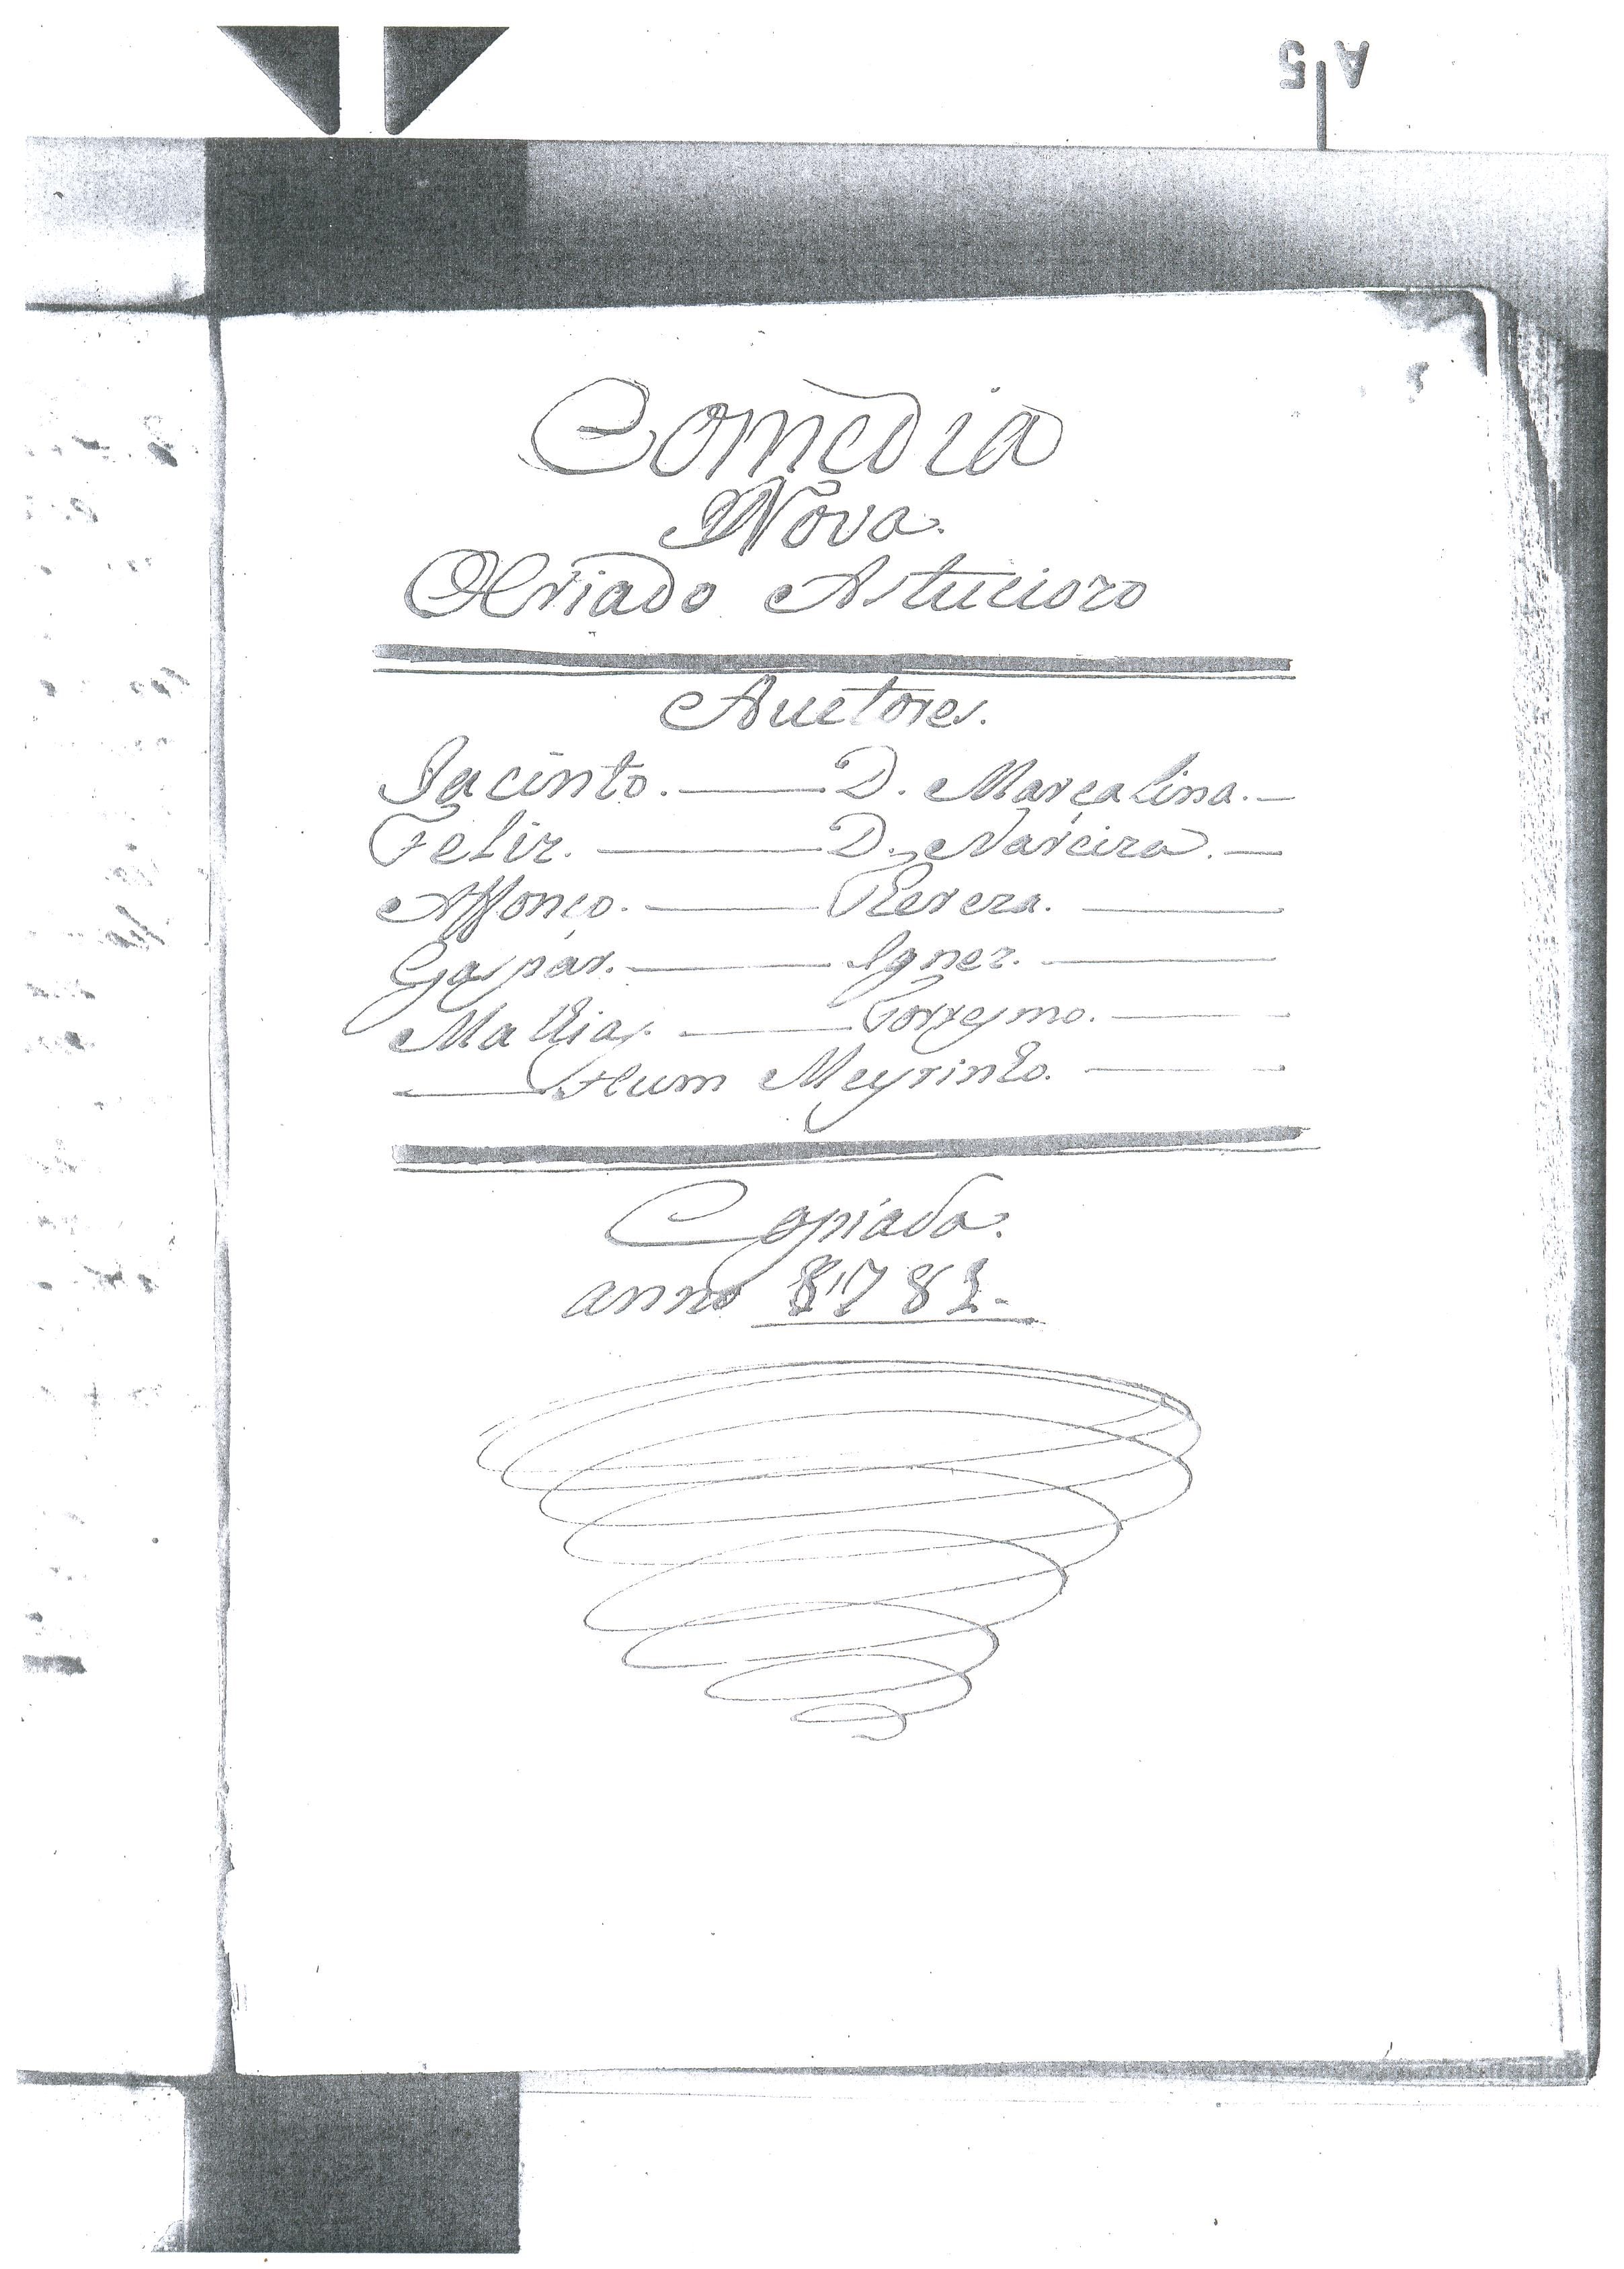 A 5
Comedia
Nova.
O Criado Astuciozo
Auctores.
Jacinto. — D. Marçalina. —
Feliz. — D. Narciza. —
Affonço. — Tereza. —
Gaspar. — Ignez. —
Mathias. — Cosmo. —
— Hum Meyrinho. —
Copiada.
anno 1781.